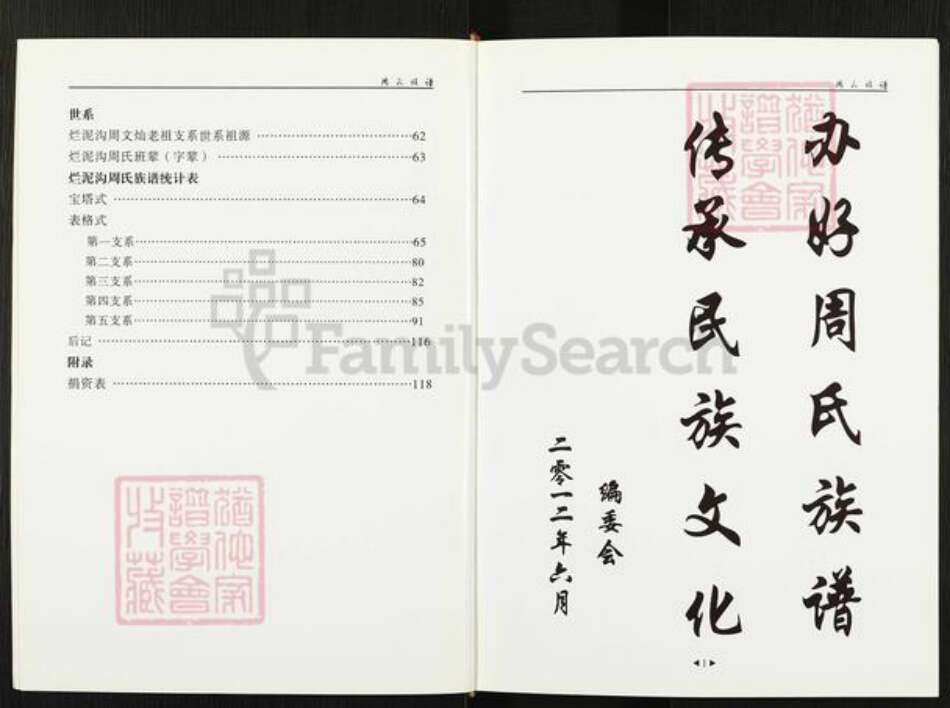 周氏族谱
世系
烂泥沟周文灿老祖支系世系祖源 ················ 62
烂泥沟周氏班辈（字辈） ················ 63
烂泥沟周氏族谱统计表
宝塔式 ················ 64
表格式
第一支系 ················ 65
第二支系 ················ 80
第三支系 ················ 82
第四支系 ················ 85
第五支系 ················ 91
后记 ················ 116
附录
捐资表 ················ 118
FamilySearch
猶他家
譜學會
收藏
周氏族谱
猶他家
譜學會
收藏
办好周氏族谱
传承民族文化
编委会
二零一二年六月
1